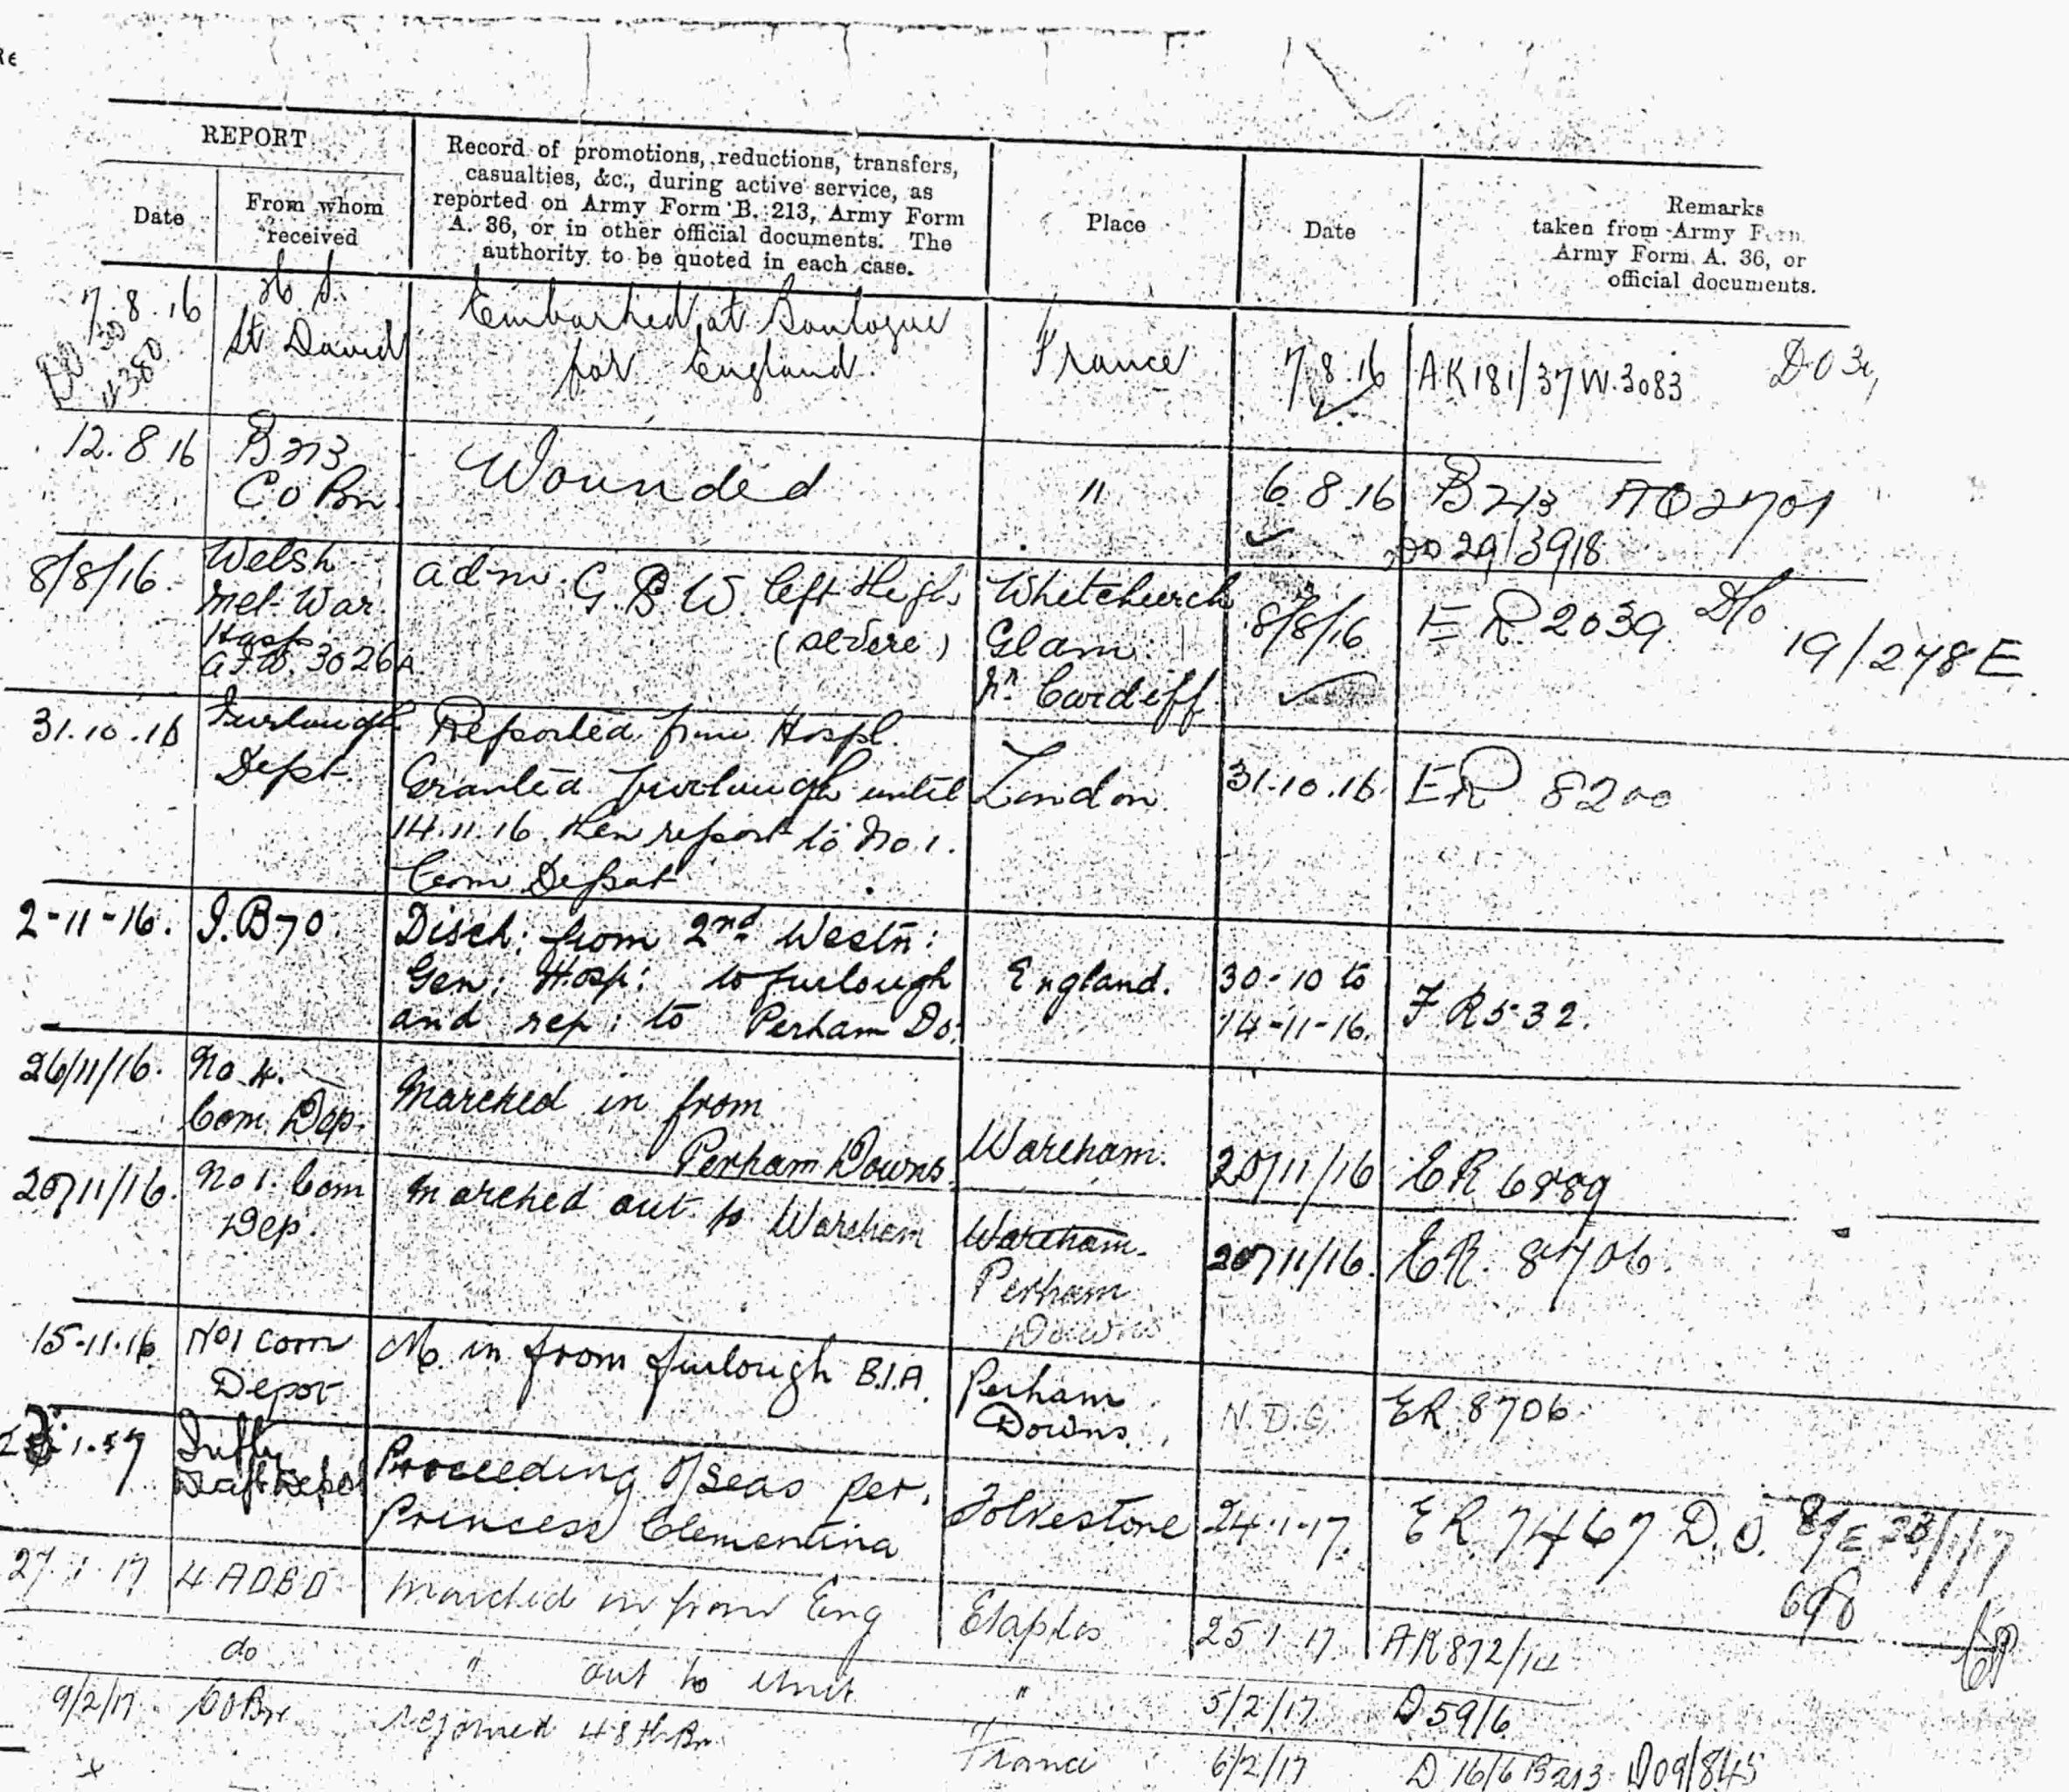 REPORT
Date
From whom
received
Record of promotions, reductions, transfers,
casualties, &c., during active service, as
reported on Army Form B. 213, Army Form
A. 36, or in other official documents. The
authority to be quoted in each case.
Place
Date
Remarks
taken from Army
Army Form A. 36, or
official documents.
7.8.16
St David
Embarked at Boulogne
for England
France
7.8.16
AK181/37 W.3083
12.8.16
B213
CO Bn.
Wounded
"
6.8.16
B213
DO 29/3918
8/8/16
Welsh
Met. War
Hosp
A.F.W. 3026A
adm. G.S.W. left thigh
(severe)
Whitchurch
Glam
Nr. Cardiff
8/8/16
E R 2039
19/278E
31.10.16
Furlough
Dept.
Reported from Hospl.
Granted furlough until
14.11.16 then report to No.1.
Com Depot
London
31.10.16
ER 8200
2-11-16.
I.B70.
Disch: from 2nd Westn:
Gen: Hosp: to furlough
and rep: to Perham Do:
England.
30-10 to
14-11-16.
F R532.
26/11/16.
No 4.
Com. Dep.
Marched in from
Perham Downs
Wareham.
20/11/16
ER 6889
20/11/16.
No 1. Com
Dep.
Marched out to Wareham
Wareham.
Perham
Downs
20/11/16.
ER. 8706
15-11-16
No1 com
Depot
M. in from furlough B.I.A.
Perham
Downs.
ER 8706
1.17
Draft Depot
Proceeding O/seas per.
Princess Clementina
Folkestone
24.1.17.
ER 7467 D.O.
27.1.17
4 ADBD
Marched in from Eng
Etaples
25.1.17
AR 872/14
do
" out to Unit
"
5/2/17
D 59/6
9/2/17
CO Bn
rejoined 48th Bn
France
6/2/17
D 16/6 B213 DO9/845